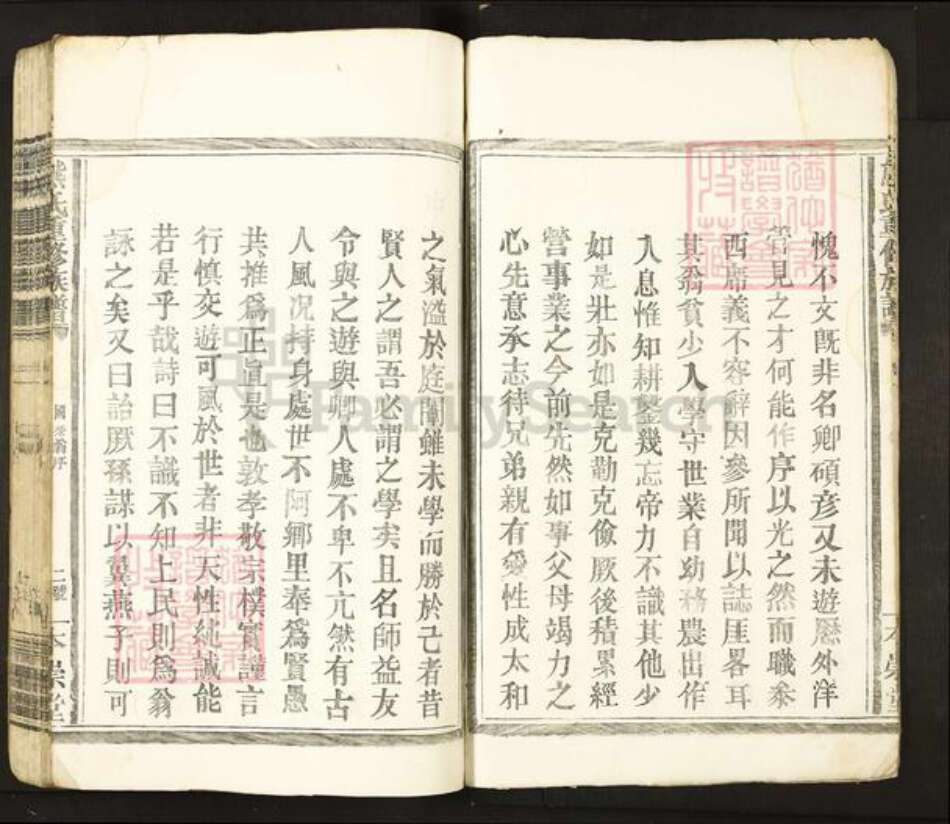 愧不文旣非名卿碩彦又未遊歷外洋
管見之才何能作序以光之然而職忝
西席義不容辭因參所聞以誌厓畧耳
其翁貧少入學守世業自幼務農出作
入息惟知耕鑿幾忘帝力不識其他少
如是壯亦如是克勤克儉厥後積累經
營事業之今前先然如事父母竭力之
心先意承志待兄弟親有愛性成太和
之氣溢於庭闈雖未學而勝於己者昔
賢人之謂吾必謂之學矣且名師益友
令與之遊與鄉人處不卑不亢然有古
人風况持身處世不阿鄉里奉爲賢愚
共推爲正直是也敦孝敬宗樸實謹言
行慎交遊可風於世者非天性純誠能
若是乎哉詩曰不識不知上民則爲翁
詠之矣又曰詒厥孫謀以翼燕子則可
氏重修族譜
二號
一本堂
FamilySearch